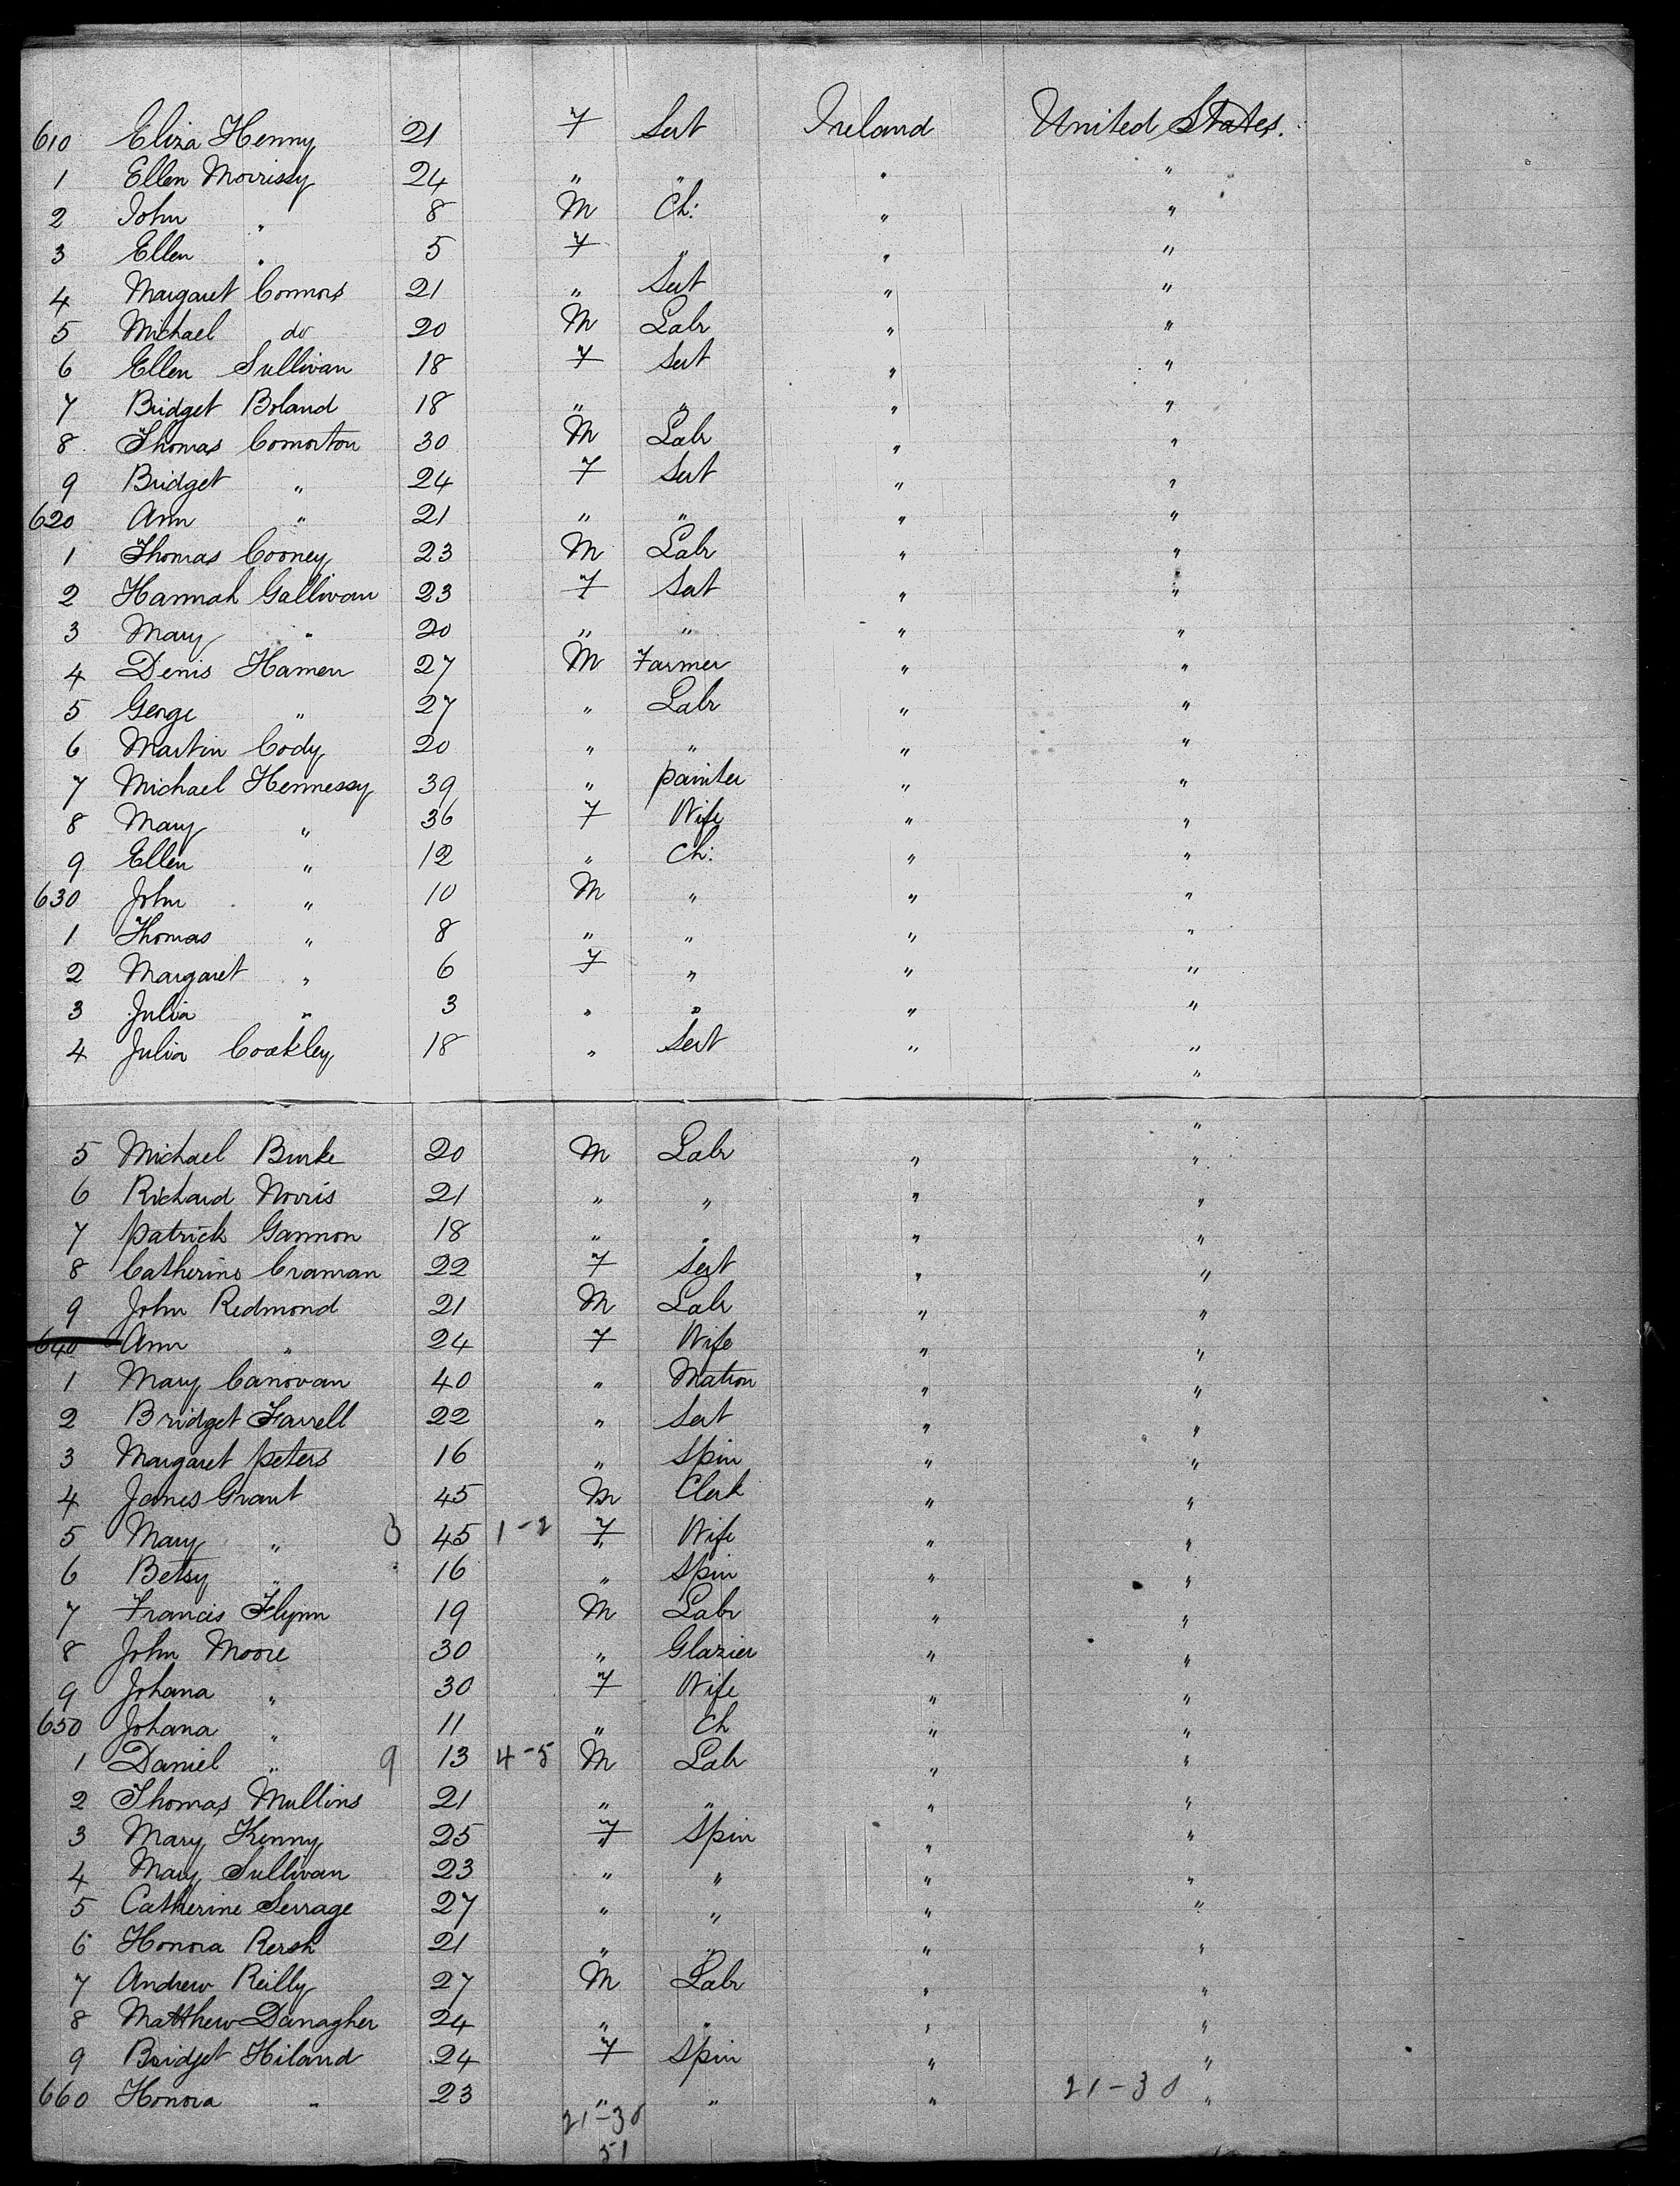 610 Eliza Henny 21 F Sert Ireland United States.
1 Ellen Morrissy 24 " " " "
2 John " 8 M Ch: " "
3 Ellen " 5 F " " "
4 Margaret Connors 21 " Sert " "
5 Michael do 20 M Labr " "
6 Ellen Sullivan 18 F Sert " "
7 Bridget Boland 18 " " " "
8 Thomas Comorton 30 M Labr " "
9 Bridget " 24 F Sert " "
620 Ann " 21 " " " "
1 Thomas Cooney 23 M Labr " "
2 Hannah Gallivan 23 F Sert " "
3 Mary " 20 " " " "
4 Denis Hamen 27 M Farmer " "
5 George " 27 " Labr " "
6 Martin Cody 20 " " " "
7 Michael Hennessy 39 " painter " "
8 Mary " 36 F Wife " "
9 Ellen " 12 " Ch: " "
630 John " 10 M " " "
1 Thomas " 8 " " " "
2 Margaret " 6 F " " "
3 Julia " 3 " " " "
4 Julia Coakley 18 " Sert " "
"
"
5 Michael Burke 20 M Labr " "
6 Richard Norris 21 " " " "
7 Patrick Gannon 18 " " " "
8 Catherine Craman 22 F Sert " "
9 John Redmond 21 M Labr " "
640 Ann " 24 F Wife " "
1 Mary Canovan 40 " Matron " "
2 Bridget Farrell 22 " Sert " "
3 Margaret Peters 16 " Spin " "
4 James Grant 45 M Clerk " "
5 Mary " 3 45 1-2 F Wife " "
6 Betsy " 16 " Spin " "
7 Francis Flynn 19 M Labr " "
8 John Moore 30 " Glazier " "
9 Johana " 30 F Wife " "
650 Johana " 11 " Ch " "
1 Daniel " 9 13 4-5 M Labr " "
2 Thomas Mullins 21 " " " "
3 Mary Kenny 25 F Spin " "
4 Mary Sullivan 23 " " " "
5 Catherine Serrage 27 " " " "
6 Honora 21 " " " "
7 Andrew Reilly 27 M Labr " "
8 Matthew Danagher 24 " " " "
9 Bridget Hiland 24 F Spin " "
660 Honora " 23 " " " 21-30 "
21-30
51